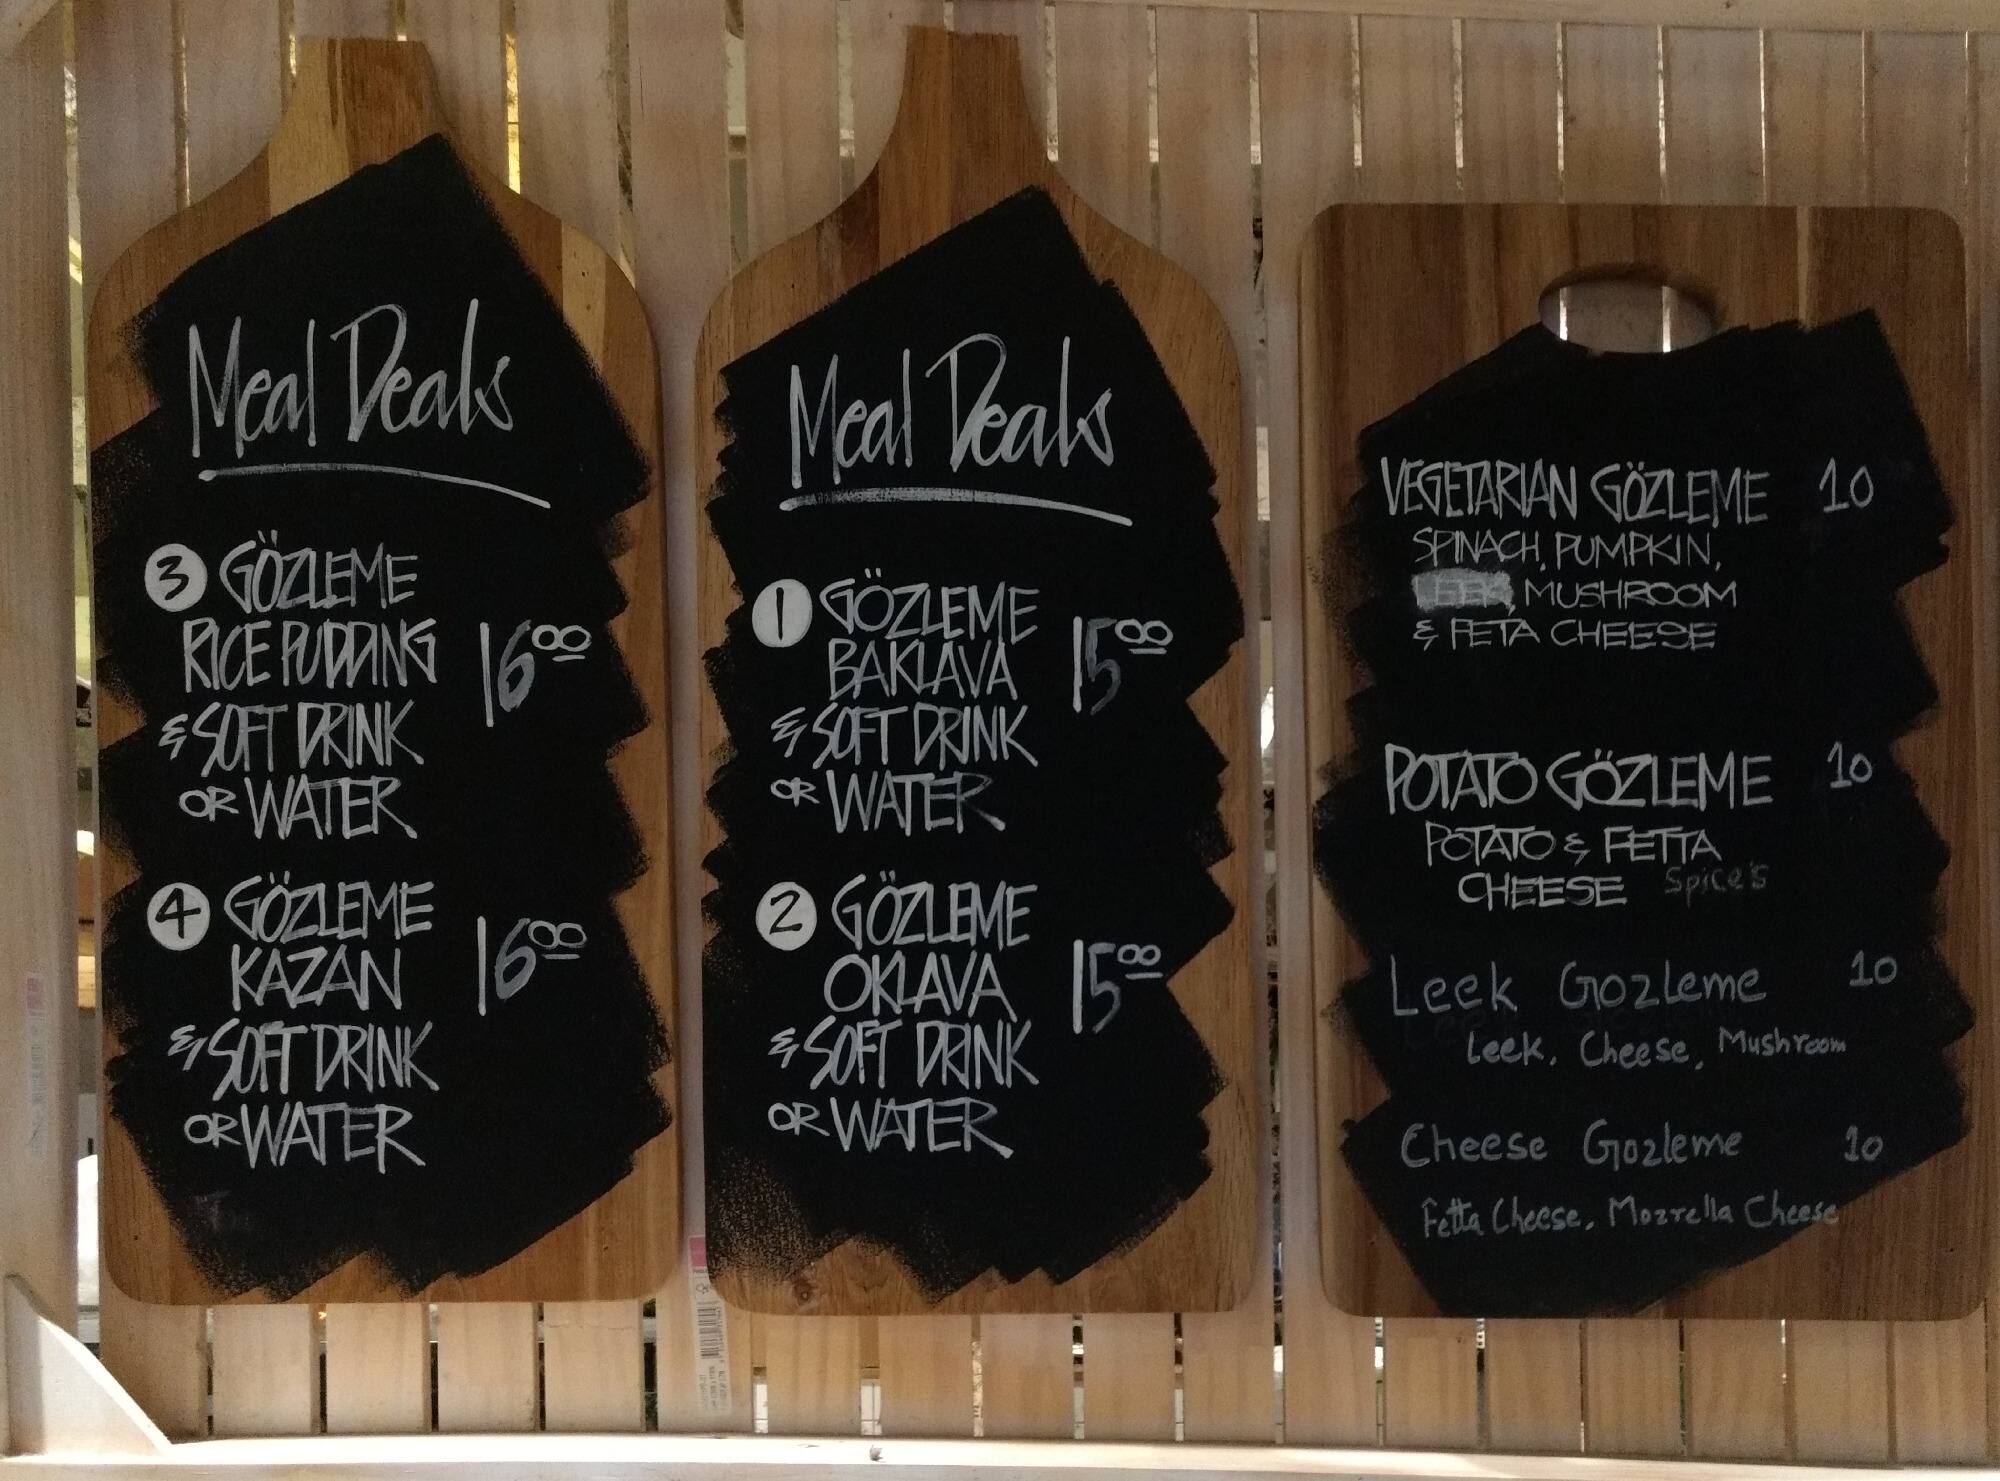 Meal Deals
3 GÖZLEME
RICE PUDDING
16.00
& SOFT DRINK
OR WATER
4 GÖZLEME
KAZAN
16.00
& SOFT DRINK
OR WATER
Meal Deals
1 GÖZLEME
BAKLAVA
15.00
& SOFT DRINK
OR WATER
2 GÖZLEME
OKLAVA
15.00
& SOFT DRINK
OR WATER
VEGETARIAN GÖZLEME 10
SPINACH, PUMPKIN,
LEEK, MUSHROOM
& FETA CHEESE
POTATO GÖZLEME 10
POTATO & FETTA
CHEESE Spice's
Leek Gozleme 10
Leek, Cheese, Mushroom
Cheese Gozleme 10
Fetta Cheese, Mozrella Cheese